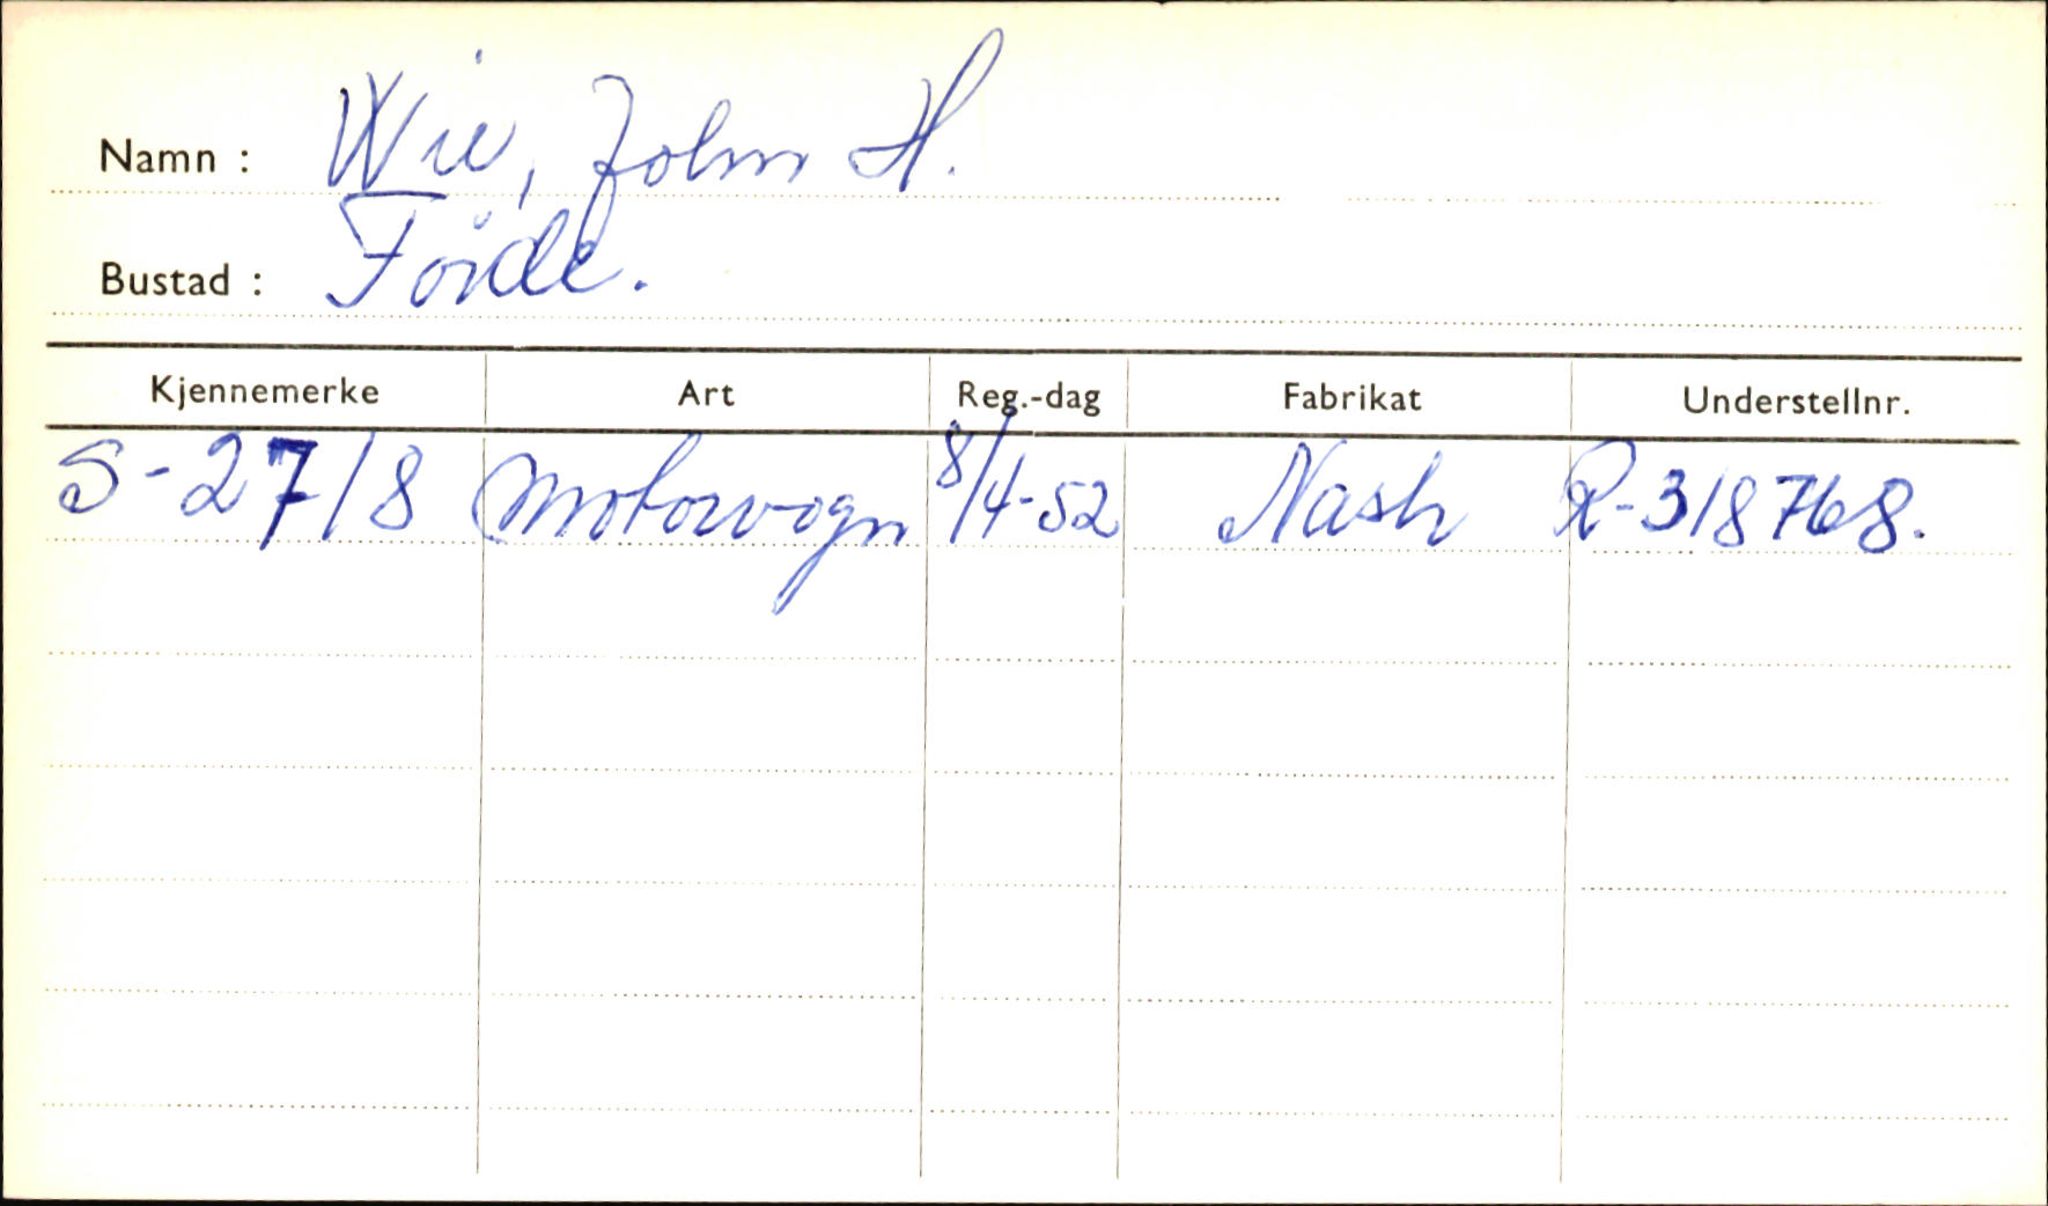 Namn : Wie, John H.
Bustad : Förde.
Kjennemerke Art Reg.-dag Fabrikat Understellnr.
S-2718 Motorvogn 8/4-52 Nash R-318768.